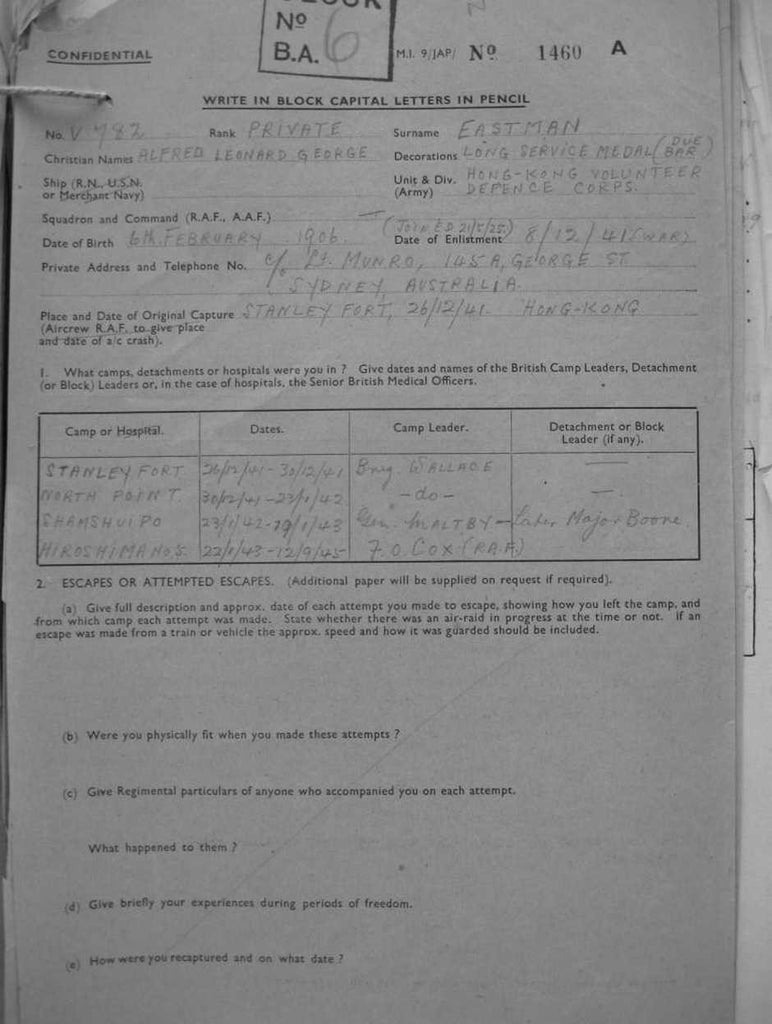 No
B.A. 6
CONFIDENTIAL
M.I. 9/JAP/ No. 1460 A
WRITE IN BLOCK CAPITAL LETTERS IN PENCIL
No. V 782 Rank PRIVATE Surname EASTMAN
Christian Names ALFRED LEONARD GEORGE Decorations LONG SERVICE MEDAL (DUE BAR)
Ship (R.N., U.S.N. Unit & Div. HONG-KONG VOLUNTEER
or Merchant Navy) (Army) DEFENCE CORPS.
Squadron and Command (R.A.F., A.A.F.) — (JOINED 21/5/25)
Date of Birth 6th FEBRUARY 1906. Date of Enlistment 8/12/41 (WAR)
Private Address and Telephone No. c/o Lt. MUNRO, 145A, GEORGE ST.
SYDNEY AUSTRALIA.
Place and Date of Original Capture STANLEY FORT, 26/12/41. HONG-KONG
(Aircrew R.A.F. to give place
and date of a/c crash).
1. What camps, detachments or hospitals were you in ? Give dates and names of the British Camp Leaders, Detachment
(or Block) Leaders or, in the case of hospitals, the Senior British Medical Officers.
Camp or Hospital. Dates. Camp Leader. Detachment or Block
Leader (if any).
STANLEY FORT 26/12/41 - 30/12/41 Brig. WALLACE —
NORTH POINT. 30/12/41 - 23/1/42 - do - —
SHAMSHUIPO 23/1/42 - 19/1/43 Gen. MALTBY - Later Major Boone.
HIROSHIMA No 5. 22/1/43 - 12/9/45 F.O. COX (RAF)
2. ESCAPES OR ATTEMPTED ESCAPES. (Additional paper will be supplied on request if required).
(a) Give full description and approx. date of each attempt you made to escape, showing how you left the camp, and
from which camp each attempt was made. State whether there was an air-raid in progress at the time or not. If an
escape was made from a train or vehicle the approx. speed and how it was guarded should be included.
(b) Were you physically fit when you made these attempts ?
(c) Give Regimental particulars of anyone who accompanied you on each attempt.
What happened to them ?
(d) Give briefly your experiences during periods of freedom.
(e) How were you recaptured and on what date ?